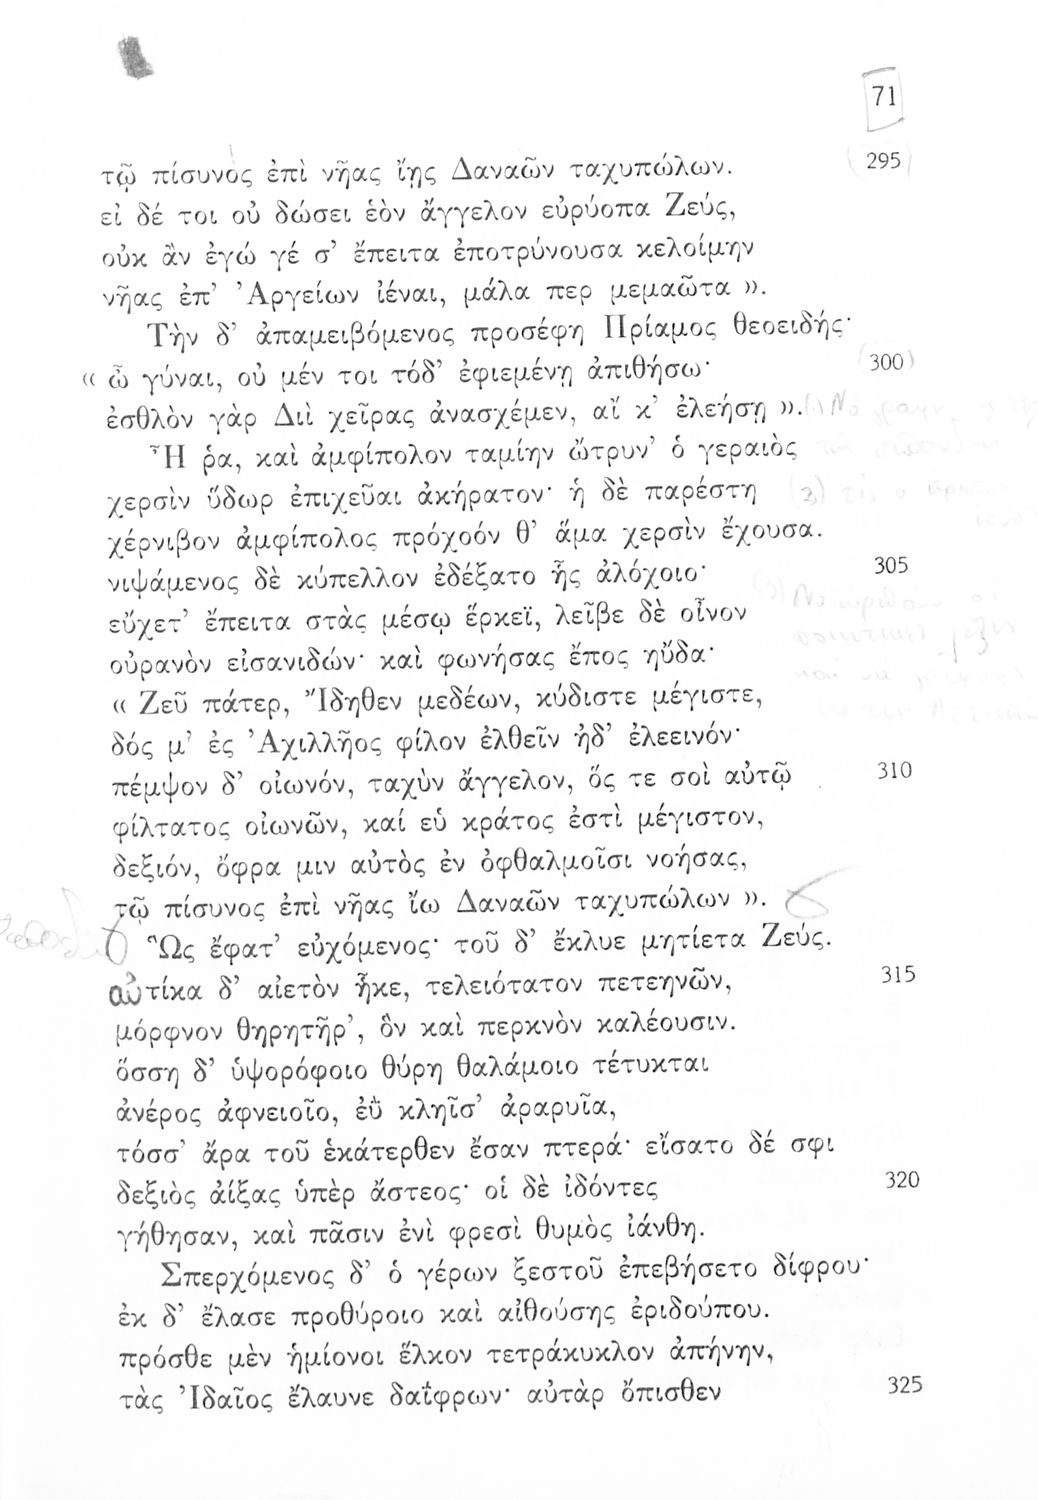 71
τῷ πίσυνος ἐπὶ νῆας ἴῃς Δαναῶν ταχυπώλων. 295
εἰ δέ τοι οὐ δώσει ἑὸν ἄγγελον εὐρύοπα Ζεύς,
οὐκ ἂν ἐγώ γέ σ’ ἔπειτα ἐποτρύνουσα κελοίμην
νῆας ἐπ’ Ἀργείων ἰέναι, μάλα περ μεμαῶτα ».
Τὴν δ’ ἀπαμειβόμενος προσέφη Πρίαμος θεοειδής·
« ὦ γύναι, οὐ μέν τοι τόδ’ ἐφιεμένῃ ἀπιθήσω· 300
ἐσθλὸν γὰρ Διὶ χεῖρας ἀνασχέμεν, αἴ κ’ ἐλεήσῃ ».
Ἦ ῥα, καὶ ἀμφίπολον ταμίην ὤτρυν’ ὁ γεραιὸς
χερσὶν ὕδωρ ἐπιχεῦαι ἀκήρατον· ἡ δὲ παρέστη
χέρνιβον ἀμφίπολος πρόχοόν θ’ ἅμα χερσὶν ἔχουσα.
νιψάμενος δὲ κύπελλον ἐδέξατο ἧς ἀλόχοιο· 305
εὔχετ’ ἔπειτα στὰς μέσῳ ἕρκεϊ, λεῖβε δὲ οἶνον
οὐρανὸν εἰσανιδών· καὶ φωνήσας ἔπος ηὔδα·
« Ζεῦ πάτερ, Ἴδηθεν μεδέων, κύδιστε μέγιστε,
δός μ’ ἐς Ἀχιλλῆος φίλον ἐλθεῖν ἠδ’ ἐλεεινόν·
πέμψον δ’ οἰωνόν, ταχὺν ἄγγελον, ὅς τε σοὶ αὐτῷ 310
φίλτατος οἰωνῶν, καί εὑ κράτος ἐστὶ μέγιστον,
δεξιόν, ὄφρα μιν αὐτὸς ἐν ὀφθαλμοῖσι νοήσας,
τῷ πίσυνος ἐπὶ νῆας ἴω Δαναῶν ταχυπώλων ».
Ὣς ἔφατ’ εὐχόμενος· τοῦ δ’ ἔκλυε μητίετα Ζεύς.
αὐτίκα δ’ αἰετὸν ἧκε, τελειότατον πετεηνῶν, 315
μόρφνον θηρητῆρ’, ὃν καὶ περκνὸν καλέουσιν.
ὅσση δ’ ὑψορόφοιο θύρη θαλάμοιο τέτυκται
ἀνέρος ἀφνειοῖο, ἐῢ κληῖσ’ ἀραρυῖα,
τόσσ’ ἄρα τοῦ ἑκάτερθεν ἔσαν πτερά· εἴσατο δέ σφι
δεξιὸς ἀίξας ὑπὲρ ἄστεος· οἱ δὲ ἰδόντες 320
γήθησαν, καὶ πᾶσιν ἐνὶ φρεσὶ θυμὸς ἰάνθη.
Σπερχόμενος δ’ ὁ γέρων ξεστοῦ ἐπεβήσετο δίφρου·
ἐκ δ’ ἔλασε προθύροιο καὶ αἰθούσης ἐριδούπου.
πρόσθε μὲν ἡμίονοι ἕλκον τετράκυκλον ἀπήνην,
τὰς Ἰδαῖος ἔλαυνε δαΐφρων· αὐτὰρ ὄπισθεν 325